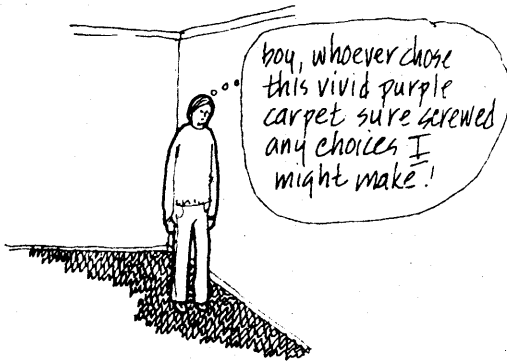 boy, whoever chose
this vivid purple
carpet sure screwed
any choices I
might make!